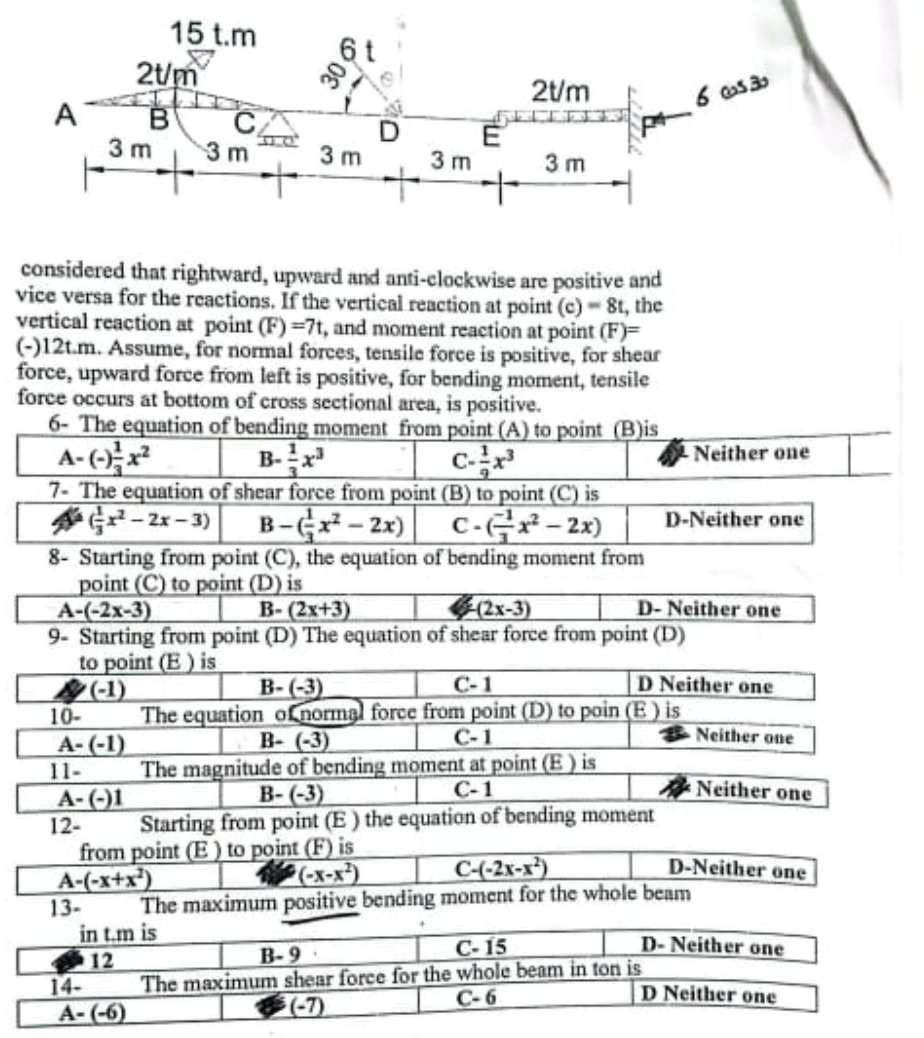 15 t.m
6 t
30
2t/m
2t/m
6 cos 30
A B C D E F
3 m 3 m 3 m 3 m 3 m
considered that rightward, upward and anti-clockwise are positive and
vice versa for the reactions. If the vertical reaction at point (c) = 8t, the
vertical reaction at point (F) =7t, and moment reaction at point (F)=
(-)12t.m. Assume, for normal forces, tensile force is positive, for shear
force, upward force from left is positive, for bending moment, tensile
force occurs at bottom of cross sectional area, is positive.
6- The equation of bending moment from point (A) to point (B)is
A- (-)⅓x² B- ⅓x³ C- 1/9 x³ Neither one
7- The equation of shear force from point (B) to point (C) is
(⅓x² − 2x − 3) B – (⅓x² − 2x) C - (-1/3 x² − 2x) D-Neither one
8- Starting from point (C), the equation of bending moment from
point (C) to point (D) is
A-(-2x-3) B- (2x+3) (2x-3) D- Neither one
9- Starting from point (D) The equation of shear force from point (D)
to point (E ) is
(-1) B- (-3) C- 1 D Neither one
10- The equation of normal force from point (D) to poin (E ) is
A- (-1) B- (-3) C- 1 Neither one
11- The magnitude of bending moment at point (E ) is
A- (-)1 B- (-3) C- 1 Neither one
12- Starting from point (E ) the equation of bending moment
from point (E ) to point (F) is
A-(-x+x²) (-x-x²) C-(-2x-x²) D-Neither one
13- The maximum positive bending moment for the whole beam
in t.m is
12 B- 9 C- 15 D- Neither one
14- The maximum shear force for the whole beam in ton is
A- (-6) (-7) C- 6 D Neither one